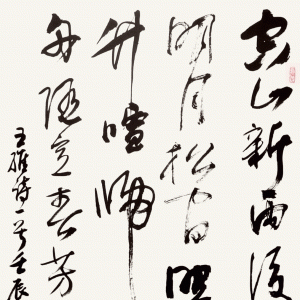 空山新雨後
明月松间照
竹喧归
舟随意春芳
王维诗一首壬辰